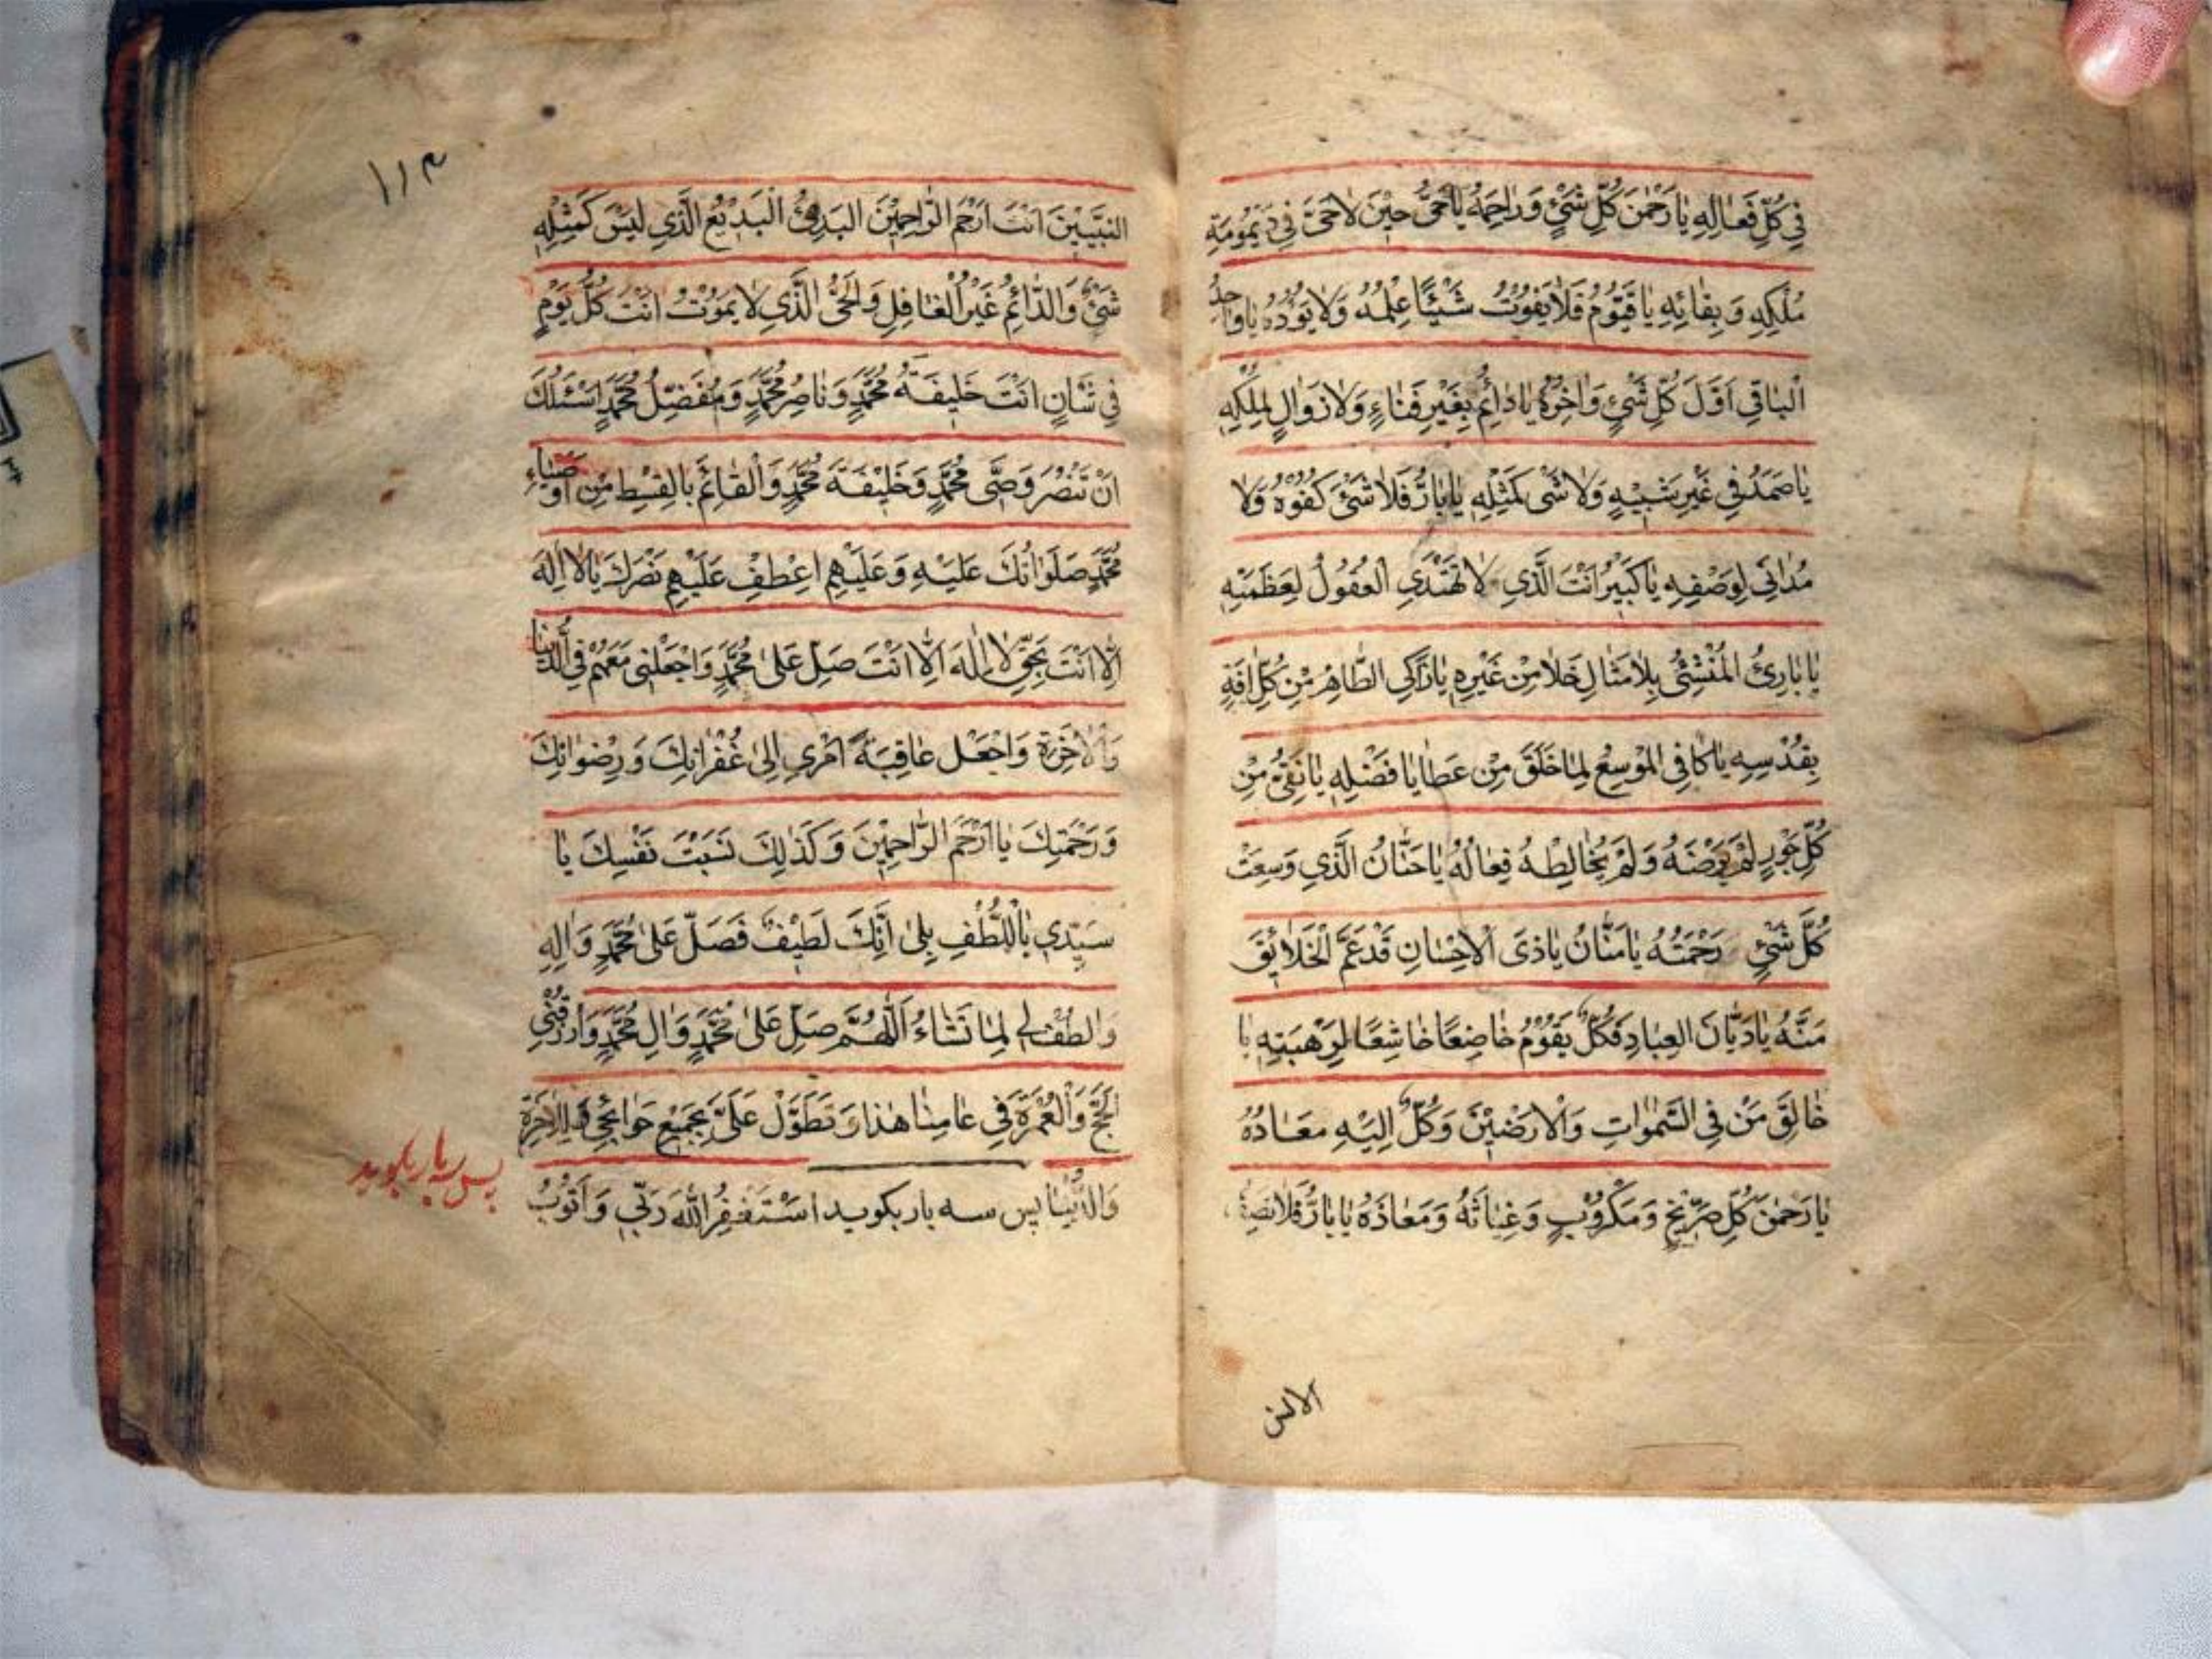 فِي كُلِّ فَعَالِهِ يَا رَحْمٰنَ كُلِّ شَيْءٍ وَرَاحِمَهُ يَا حَيُّ حِيْنَ لَا حَيَّ فِي دَيْمُومَةِ
مُلْكِهِ وَبَقَائِهِ يَا قَيُّوْمُ فَلَا يَفُوْتُ شَيْئًا عِلْمُهُ وَلَا يَؤُدُهُ يَا وَاحِدُ
الْبَاقِي اَوَّلَ كُلِّ شَيْءٍ وَاٰخِرَهُ يَا دَائِمُ بِغَيْرِ فَنَاءٍ وَلَا زَوَالٍ لِمُلْكِهِ
يَا صَمَدُ فِي غَيْرِ شَبِيْهٍ وَلَا شَيْءَ كَمِثْلِهِ يَا بَارُّ فَلَا شَيْءَ كُفُوْهُ وَلَا
مُدَانِيَ لِوَصْفِهِ يَا كَبِيْرُ اَنْتَ الَّذِي لَا تَهْتَدِي الْعُقُوْلُ لِعَظَمَتِهِ
يَا بَارِئُ الْمُنْشِئُ بِلَا مِثَالٍ خَلَا مِنْ غَيْرِهِ يَا زَاكِي الطَّاهِرُ مِنْ كُلِّ اٰفَةٍ
بِقُدْسِهِ يَا كَافِي الْمُوْسِعُ لِمَا خَلَقَ مِنْ عَطَايَا فَضْلِهِ يَا نَقِيُّ مِنْ
كُلِّ جَوْرٍ لَمْ يَرْضَهُ وَلَمْ يُخَالِطْهُ فِعَالُهُ يَا حَنَّانُ الَّذِي وَسِعَتْ
كُلَّ شَيْءٍ رَحْمَتُهُ يَا مَنَّانُ يَا ذَى الْاِحْسَانِ قَدْ عَمَّ الْخَلَائِقَ
مَنُّهُ يَا دَيَّانَ الْعِبَادِ فَكُلٌّ يَقُوْمُ خَاضِعًا خَاشِعًا لِرَهْبَتِهِ يَا
خَالِقَ مَنْ فِي السَّمٰوَاتِ وَالْاَرَضِيْنَ وَكُلٌّ اِلَيْهِ مَعَادُهُ
يَا رَحْمٰنَ كُلِّ صَرِيْخٍ وَمَكْرُوْبٍ وَغِيَاثَهُ وَمَعَاذَهُ يَا بَارُّ فَلَا تَصِفُ
الالسن
۱۱۳
النَّبِيِّيْنَ اَنْتَ اَرْحَمُ الرَّاحِمِيْنَ الْبَدِيْءُ الْبَدِيْعُ الَّذِي لَيْسَ كَمِثْلِهِ
شَيْءٌ وَالدَّائِمُ غَيْرُ الْغَافِلِ وَالْحَيُّ الَّذِي لَا يَمُوْتُ اَنْتَ كُلَّ يَوْمٍ
فِي شَانٍ اَنْتَ خَلِيفَةُ مُحَمَّدٍ وَنَاصِرُ مُحَمَّدٍ وَمُفَضِّلُ مُحَمَّدٍ اَسْئَلُكَ
اَنْ تَنْصُرَ وَصِيَّ مُحَمَّدٍ وَخَلِيْفَةَ مُحَمَّدٍ وَالْقَائِمَ بِالْقِسْطِ مِنْ اَوْصِيَاءِ
مُحَمَّدٍ صَلَوَاتُكَ عَلَيْهِ وَعَلَيْهِمْ اِعْطِفْ عَلَيْهِمْ نَصْرَكَ يَا لَا اِلٰهَ
اِلَّا اَنْتَ بِحَقِّ لَا اِلٰهَ اِلَّا اَنْتَ صَلِّ عَلٰى مُحَمَّدٍ وَاجْعَلْنِي مَعَهُمْ فِي الدُّنْيَا
وَالْاٰخِرَةِ وَاجْعَلْ عَاقِبَةَ اَمْرِي اِلٰى غُفْرَانِكَ وَرِضْوَانِكَ
وَرَحْمَتِكَ يَا اَرْحَمَ الرَّاحِمِيْنَ وَكَذٰلِكَ نَسَبْتَ نَفْسَكَ يَا
سَيِّدِي بِاللُّطْفِ بَلٰى اِنَّكَ لَطِيْفٌ فَصَلِّ عَلٰى مُحَمَّدٍ وَاٰلِهِ
وَالْطُفْ لِي لِمَا تَشَاءُ اَللّٰهُمَّ صَلِّ عَلٰى مُحَمَّدٍ وَاٰلِ مُحَمَّدٍ وَارْزُقْنِي
الْحَجَّ وَالْعُمْرَةَ فِي عَامِنَا هٰذَا وَتَطَوَّلْ عَلَيَّ بِجَمِيْعِ حَوَائِجِي لِلْاٰخِرَةِ
وَالدُّنْيَا پس سه بار بكويد اَسْتَغْفِرُ اللهَ رَبِّي وَاَتُوْبُ
پس سه بار بكويد